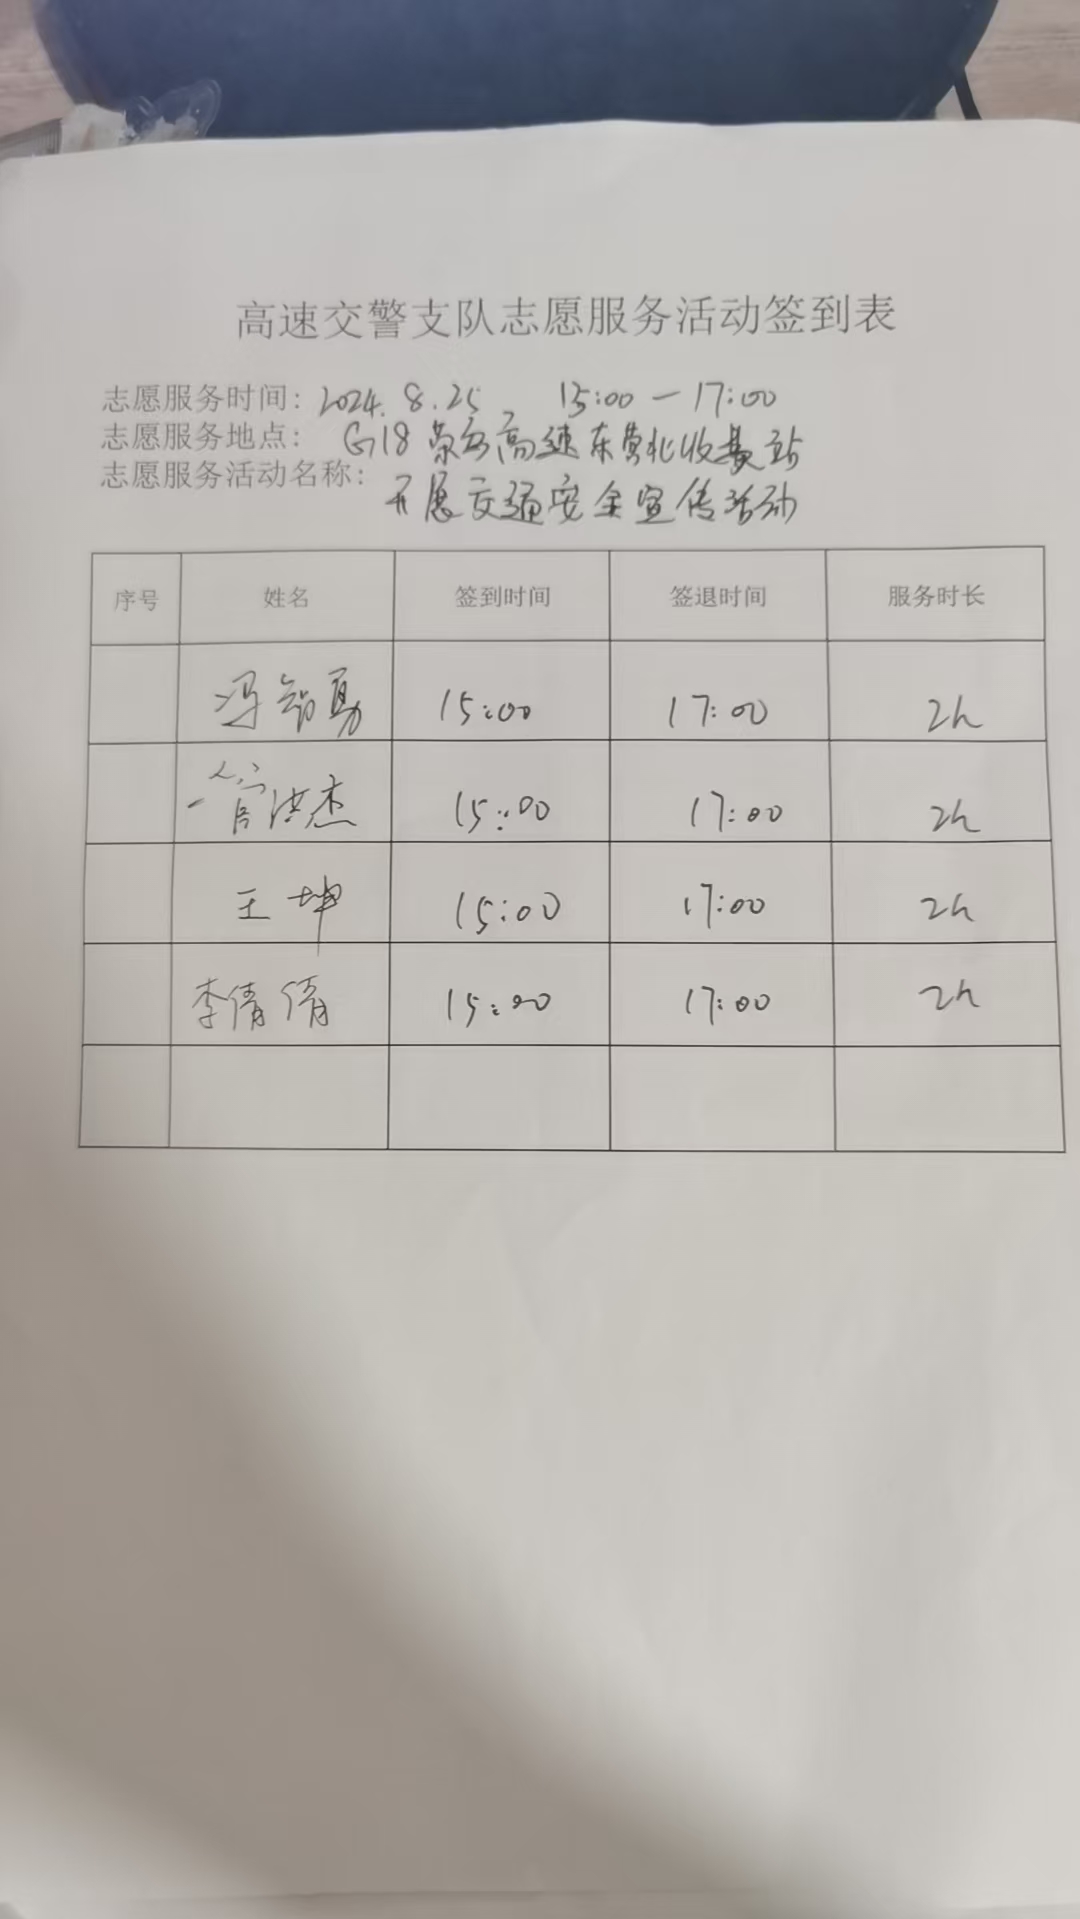 高速交警支队志愿服务活动签到表
志愿服务时间：2024.8.25 15:00—17:00
志愿服务地点：G18荣乌高速东营北收费站
志愿服务活动名称：开展交通安全宣传活动
序号 姓名 签到时间 签退时间 服务时长
冯智勇 15:00 17:00 2h
管洪杰 15:00 17:00 2h
王坤 15:00 17:00 2h
李倩倩 15:00 17:00 2h